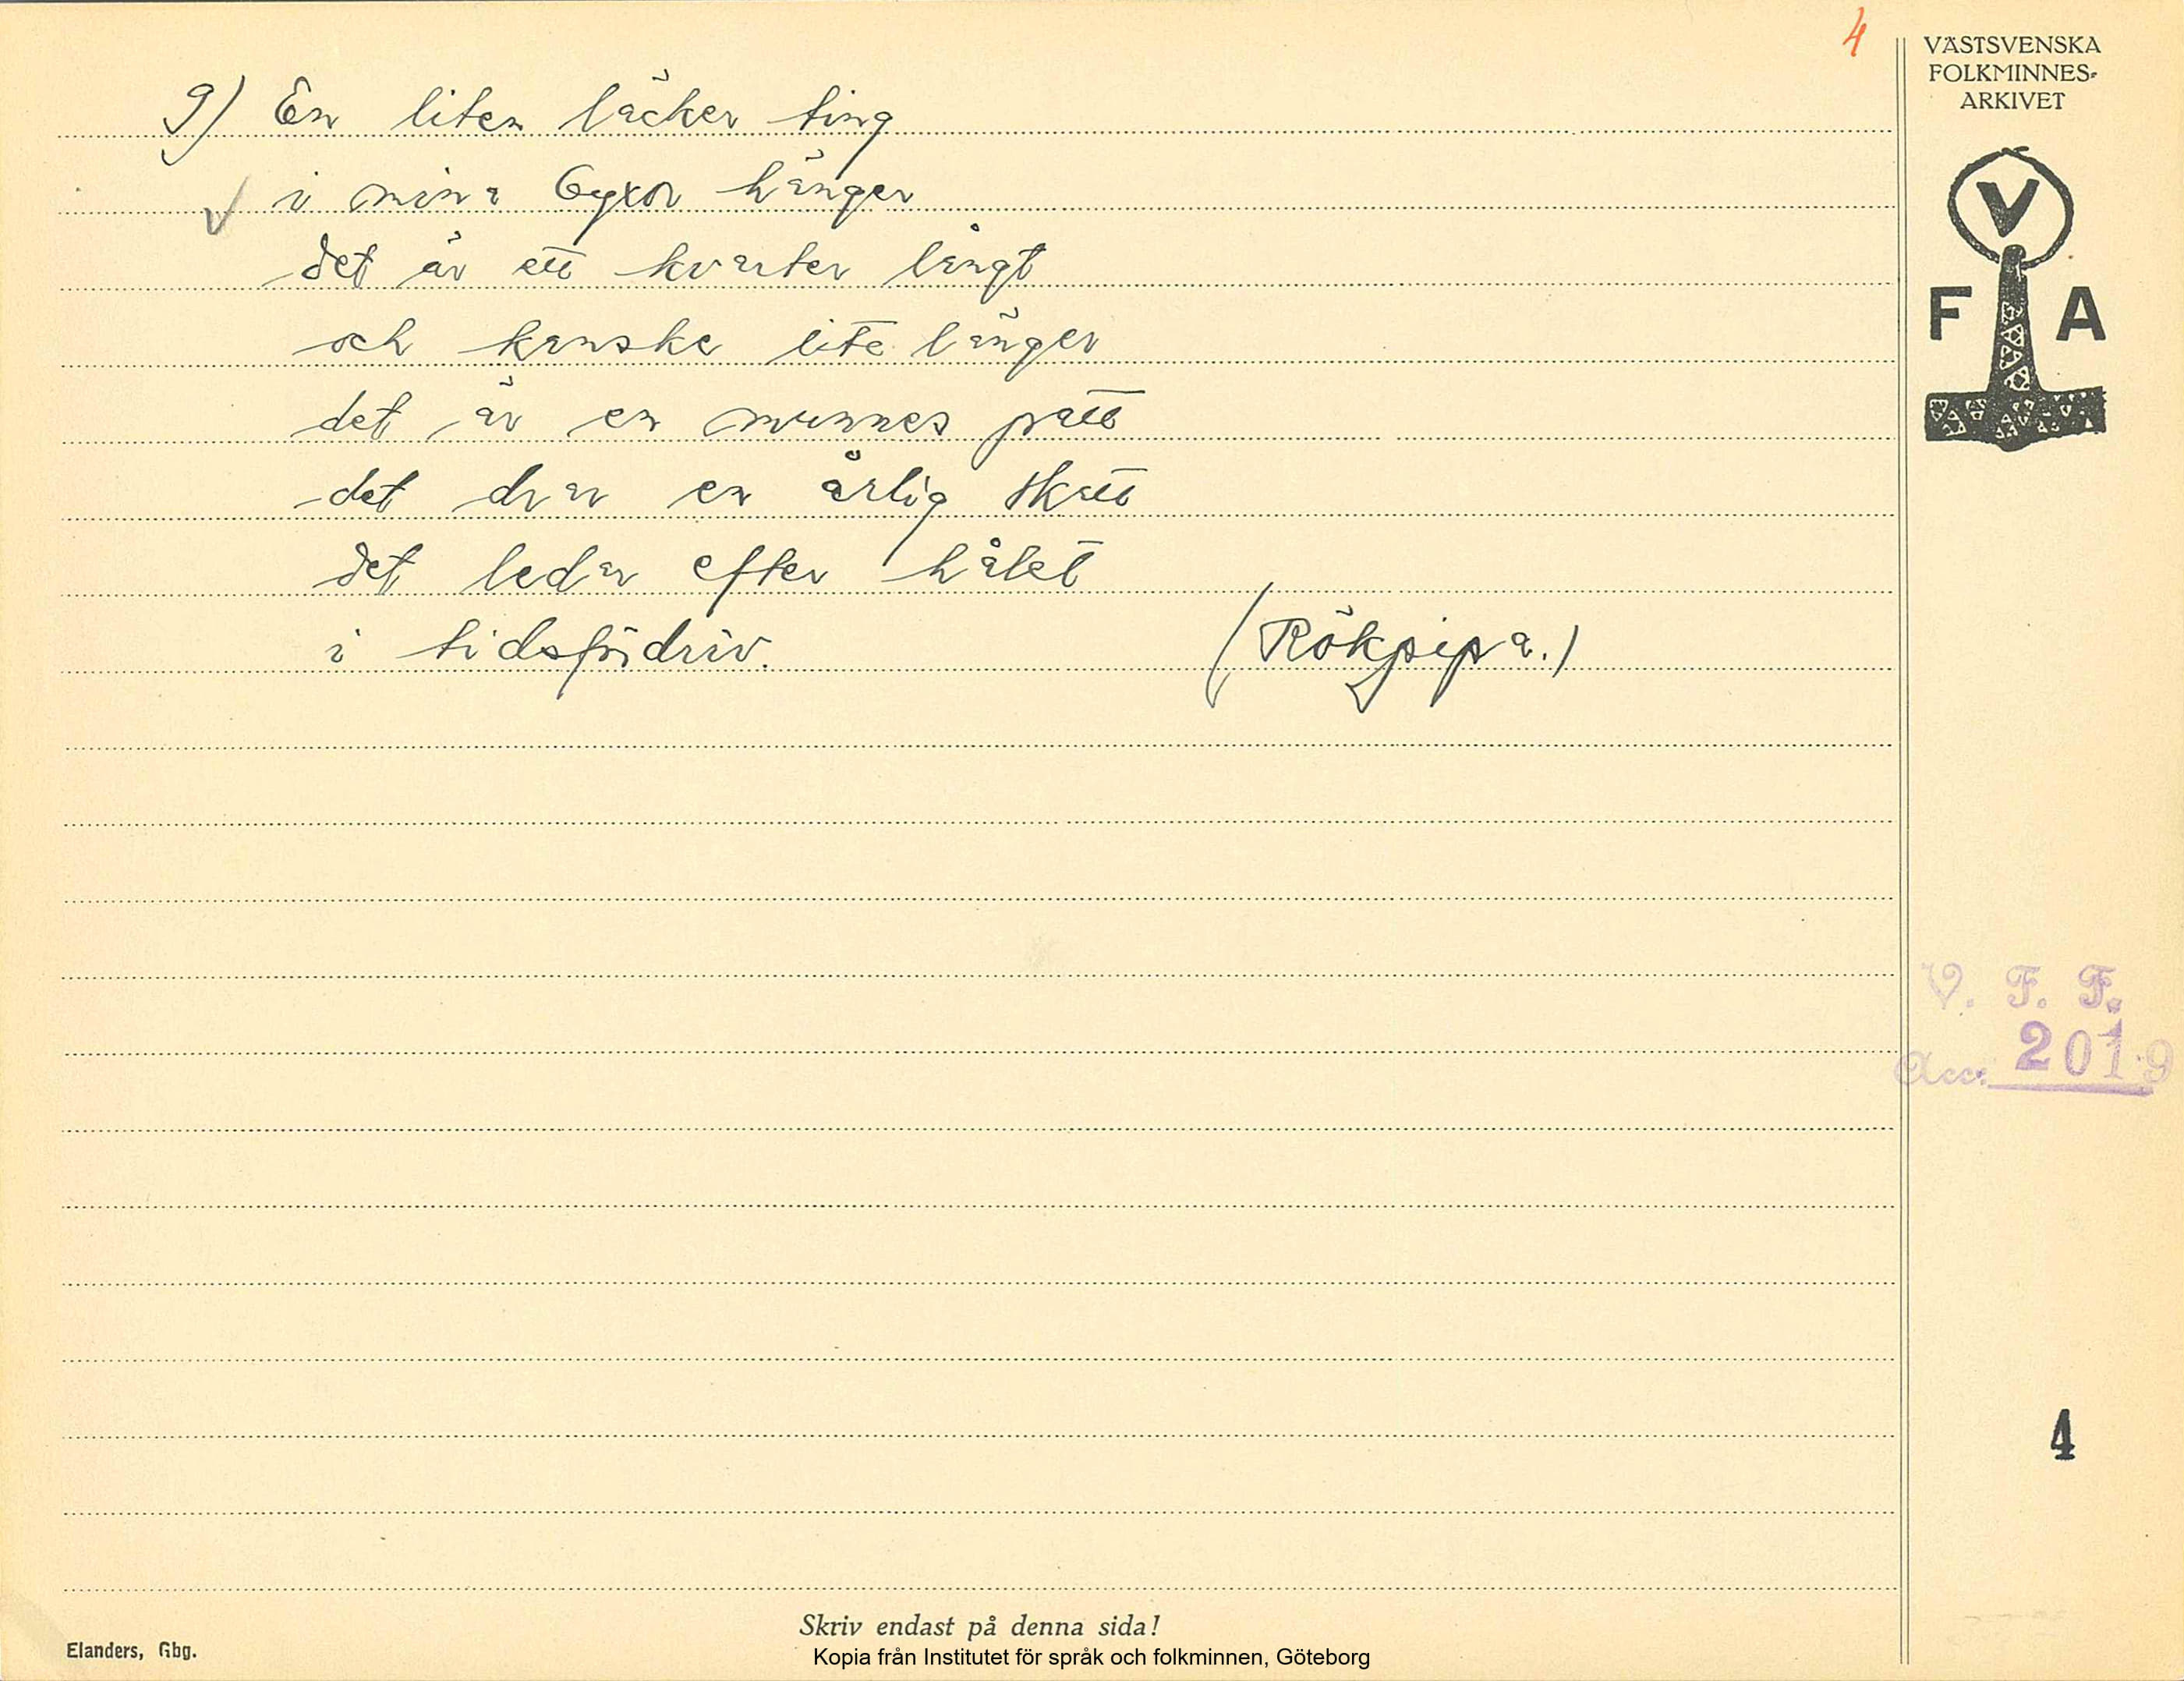 4
VÄSTSVENSKA
FOLKMINNES-
ARKIVET
V
F A
9) En liten läcker ting
√ i mina byxor hänger
det är ett kvarter långt
och kanske lite länger
det är en munnes patt
det drar en årlig skatt
det ledar efter hålet
i tidsfördriv.
(Rökpipa.)
V. F. F.
Acc. 2019
4
Skriv endast på denna sida!
Elanders, Gbg.
Kopia från Institutet för språk och folkminnen, Göteborg